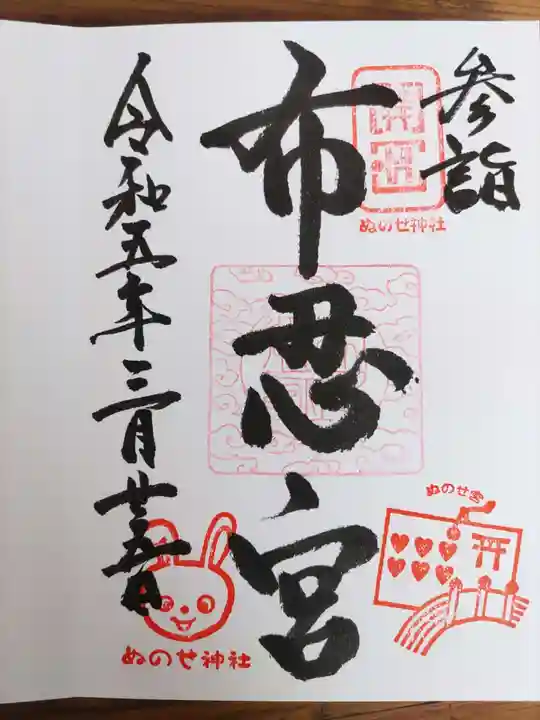 参詣
布忍宮
令和五年三月廿五日
ぬのせ神社
ぬのせ宮
ぬのせ神社